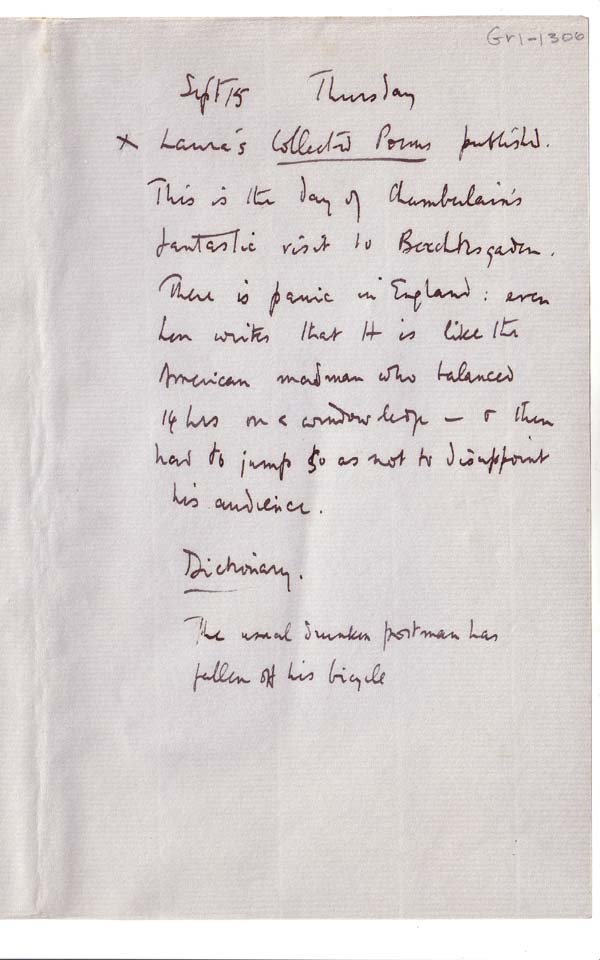 Gr1-1306
Sept 15 Thursday
x Laura's Collected Poems published.
This is the day of Chamberlain's
fantastic visit to Berchtesgaden.
There is panic in England: even
Len writes that H is like the
American madman who balanced
14 hrs on a window ledge – & then
had to jump so as not to disappoint
his audience.
Dictionary.
The usual drunken postman has
fallen off his bicycle